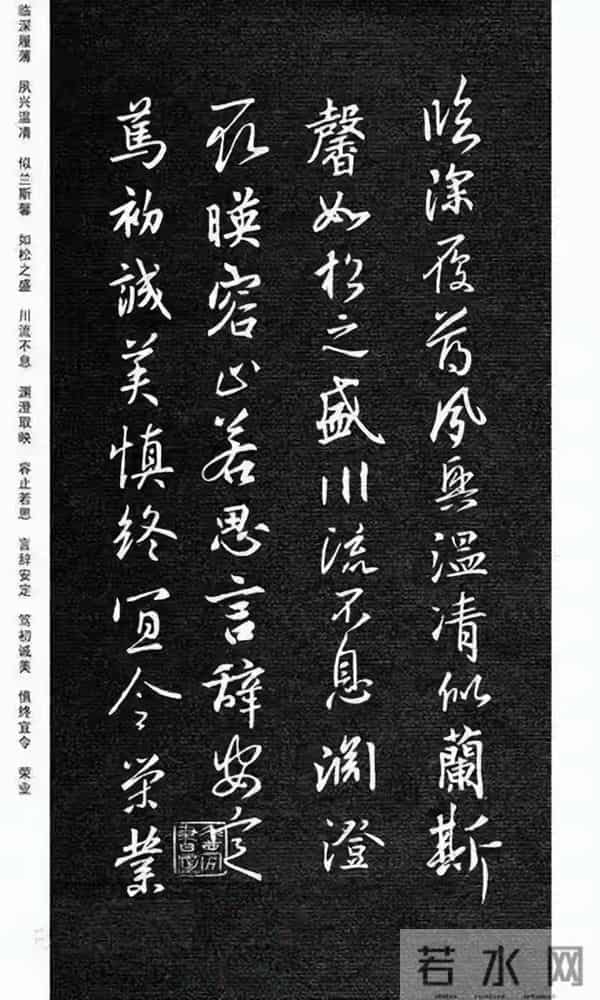 臨深履薄夙興温凊似蘭斯
馨如松之盛川流不息淵澄
取暎容止若思言辞安定
篤初誠美慎終宜令榮業
临深履薄 夙兴温凊 似兰斯馨 如松之盛 川流不息 渊澄取映 容止若思 言辞安定 笃初诚美 慎终宜令 荣业
若水网